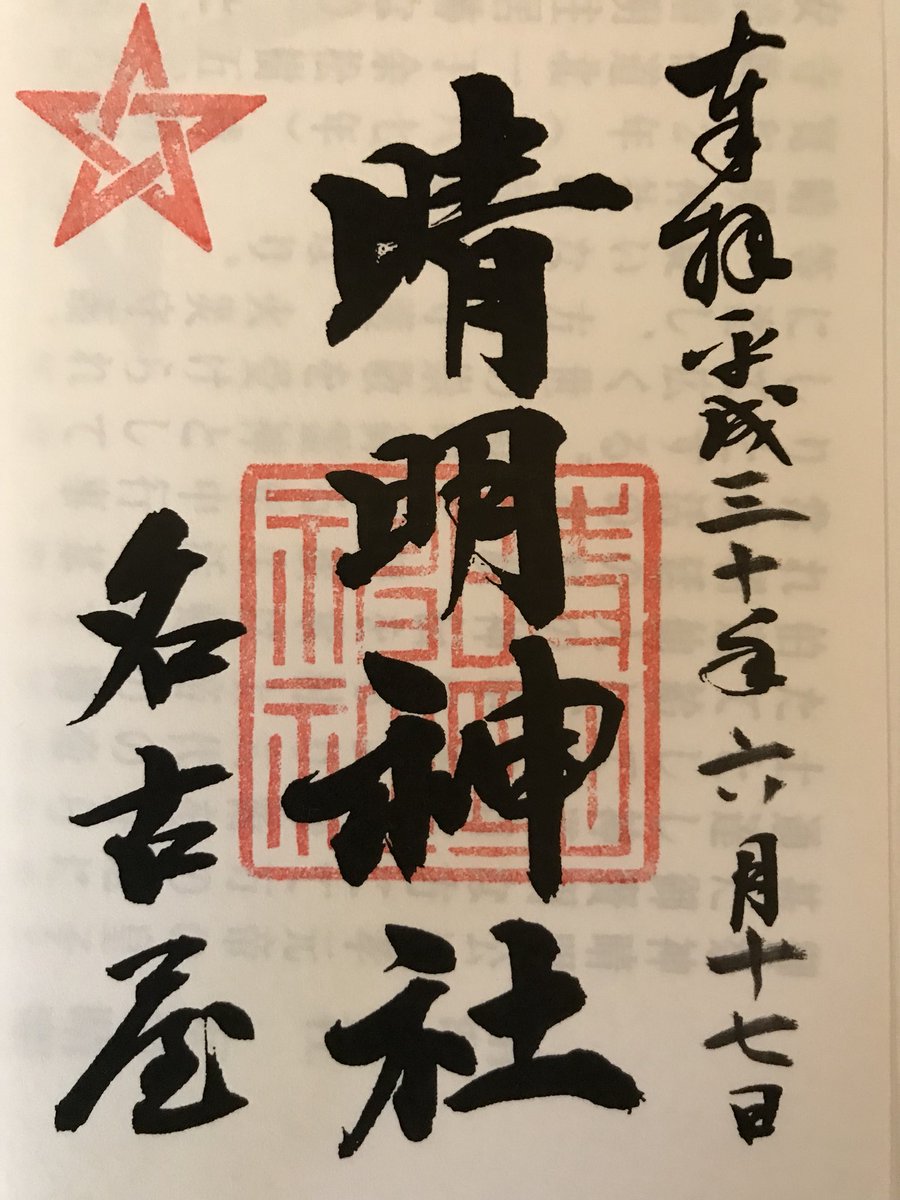 奉拝 平成三十年六月十七日
晴明神社
名古屋
晴明神社